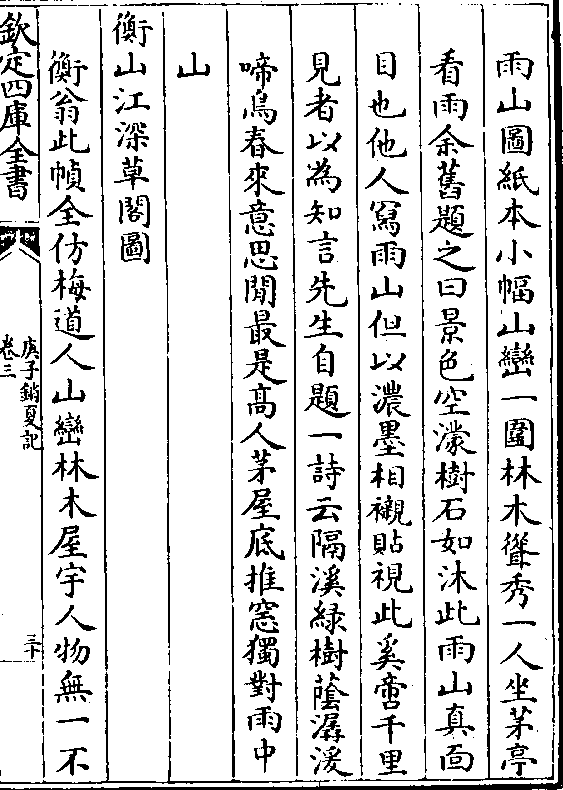 雨山圖紙本小幅山巒一圍林木聳秀一人坐茅亭
看雨余舊題之曰景色空濛樹石如沐此雨山真面
目也他人寫雨山但以濃墨相襯貼視此奚啻千里
見者以為知言先生自題一詩云隔溪綠樹蔭潺湲
啼鳥春來意思閒最是高人茅屋底推窓獨對雨中
山
衡山江深草閣圖
衡翁此幀全仿梅道人山巒林木屋宇人物無一不
欽定四庫全書
庚子銷夏記
卷三